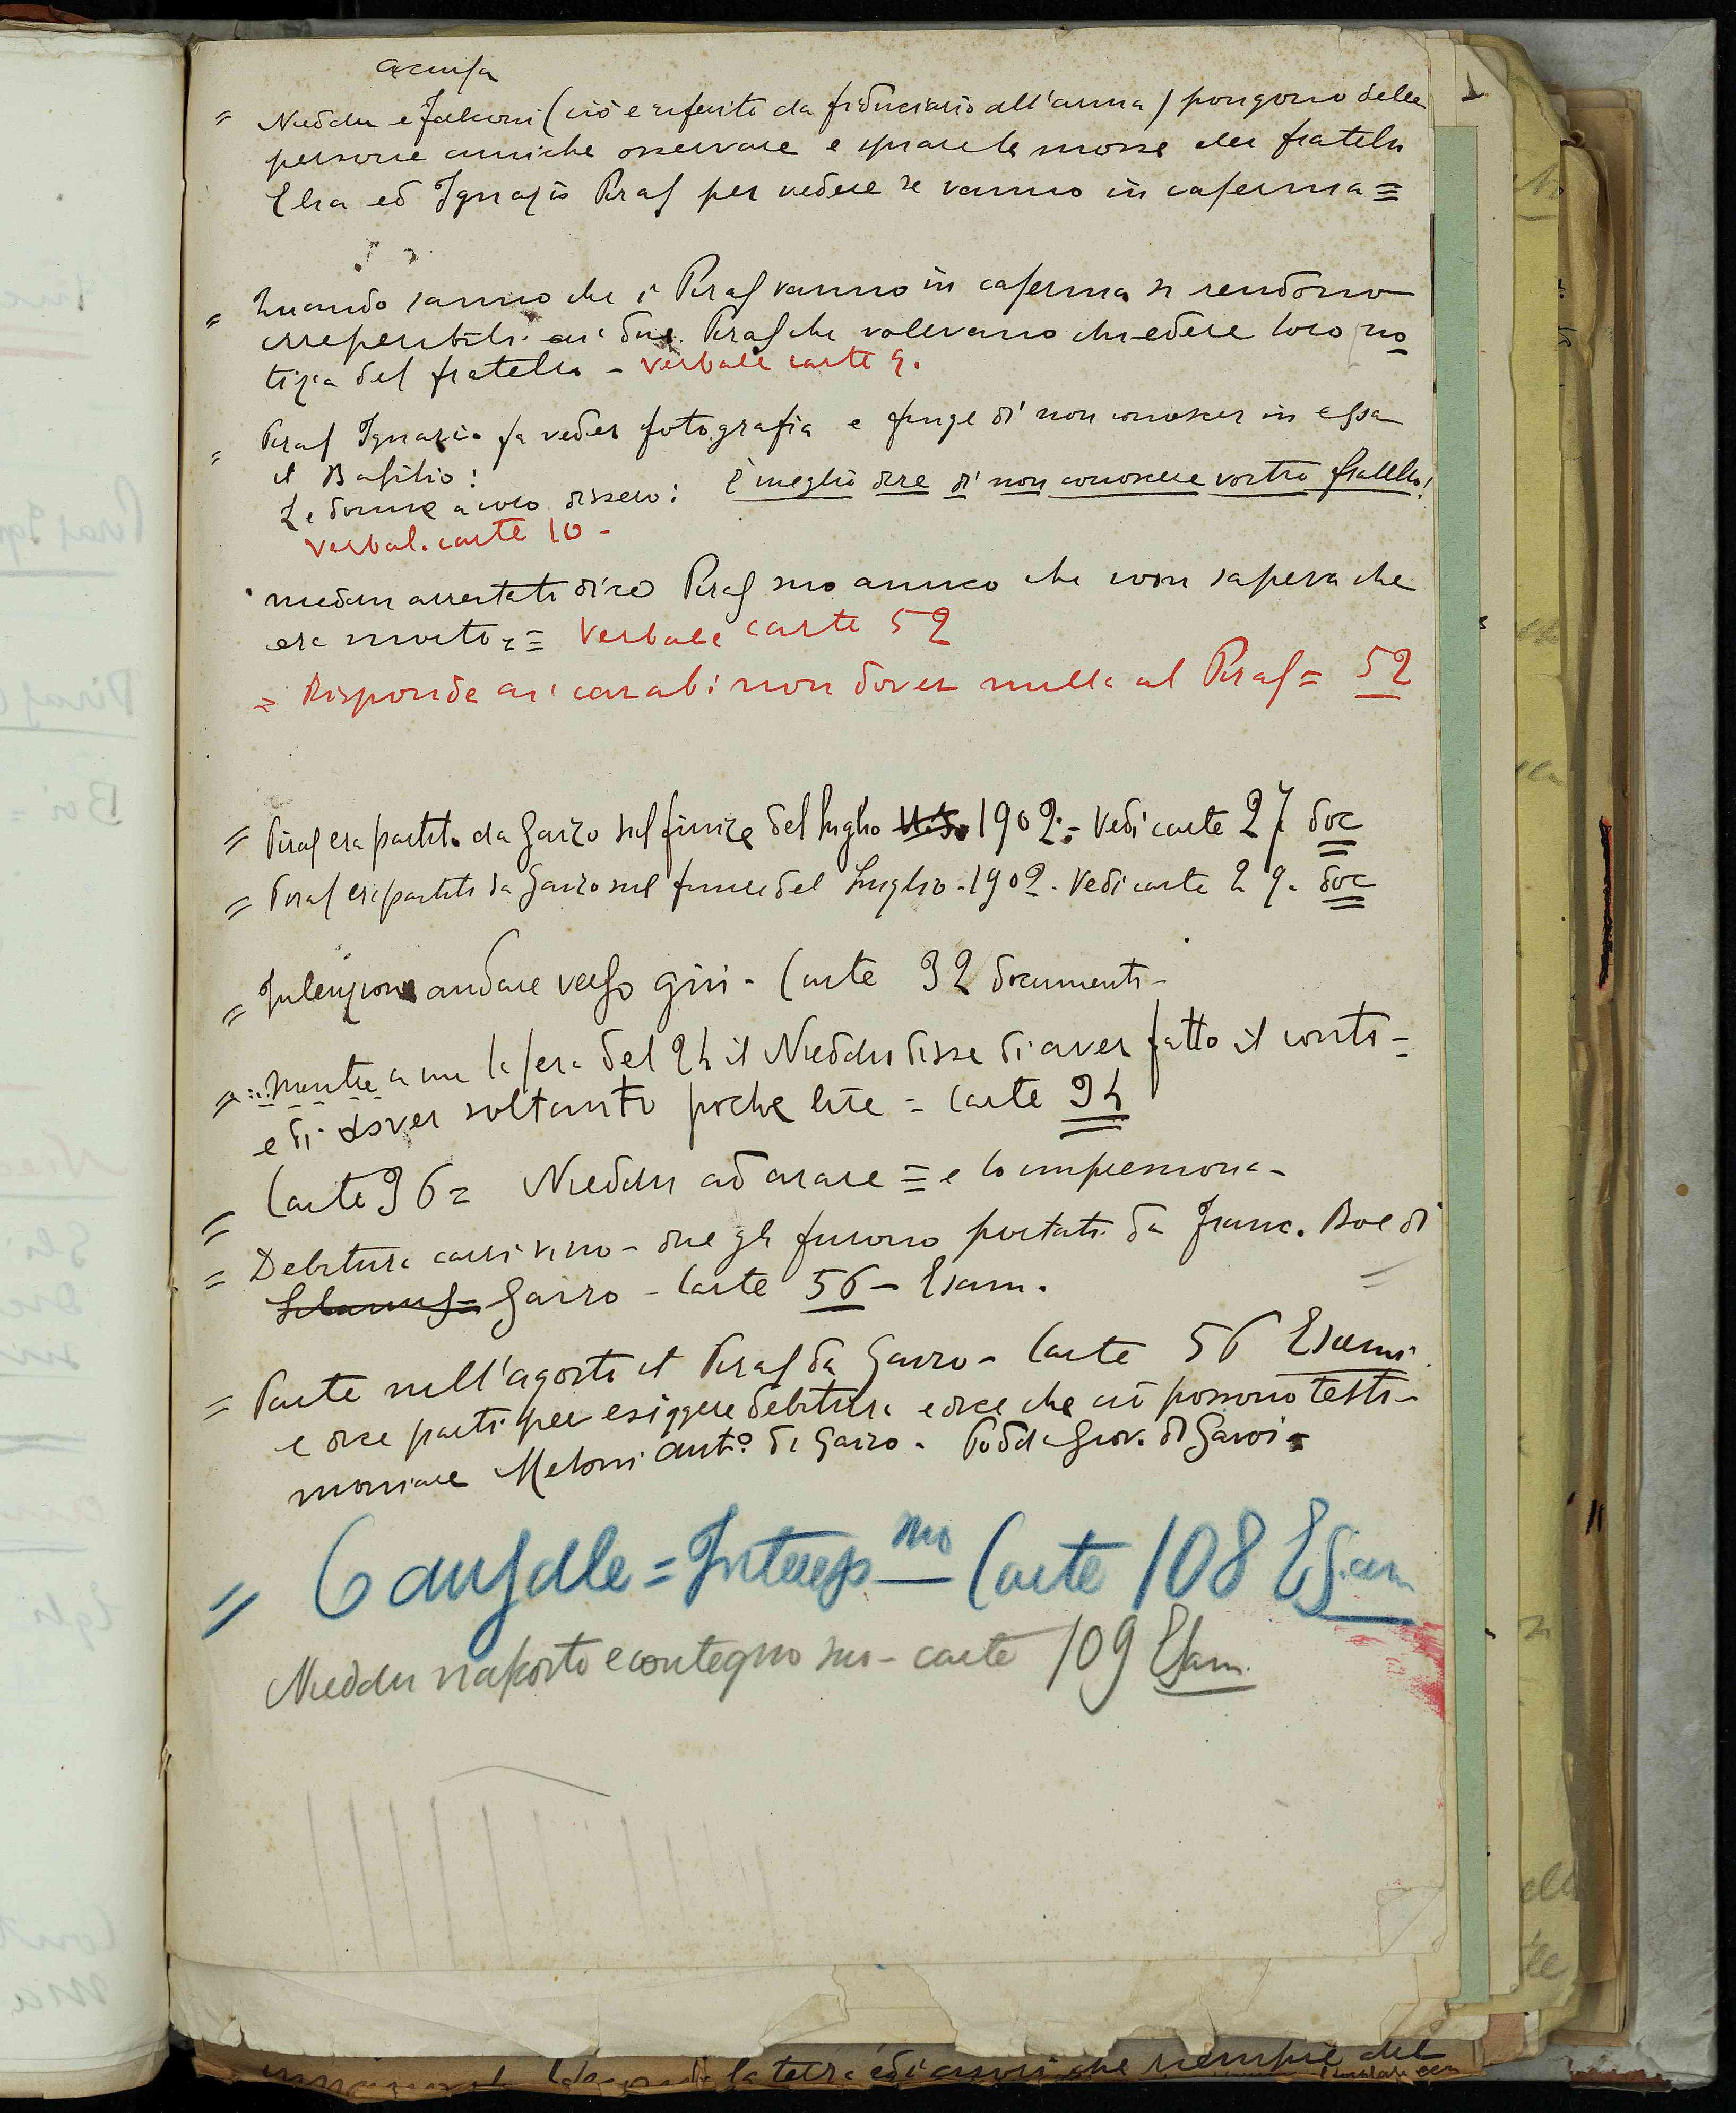 accusa
= Nieddu e Falconi (ciò è riferito da fiduciario all'arma) pongono delle
persone amiche osservare e spiare le mosse dei fratelli
Elia ed Ignazio Piras per vedere se vanno in caserma =
= Quando sanno che i Piras vanno in caserma si rendono
irreperibili ai due Piras che volevano chiedere loro no
tizia del fratello - Verbale carte 9.
= Piras Ignazio fa veder fotografia e finge di non conoscer in essa
il Basilio:
Le donne a loro dissero: È meglio dire di non conoscere vostro fratello!
Verbal. carte 10 -
Nieddu arrestato dice Piras suo amico che non sapeva che
era morto = Verbale carte 52
= Risponde ai carabi non dover nulla al Piras = 52
= Piras era partito da Gairo sul finire del luglio 1902 - Vedi carte 27 doc
= Piras era partito da Gairo sul finire del Luglio - 1902 - Vedi carte 29. doc
= Intenzione andare verso - Carte 32 documenti -
= mentre a me la sera del 24 il Nieddu disse di aver fatto il conto =
e di dover soltanto poche lire = Carte 34
= Carte 36 = Nieddu ad arare = e lo impressiona -
= Debitura - che gli furono portati da Franc. Boe di
Gairo - Carte 56 - Esam.
= Parte nell'agosto il Piras da Gairo - Carte 56 Esami
e dice partì per esiggere debitura e dice che ciò possono testi-
moniare Meloni Ant.º di Gairo - Podda Giov. di Gavoi =
= Causale = Interessmo Carte 108 Esam
Nieddu risposto e contegno suo - carte 109 Esam.